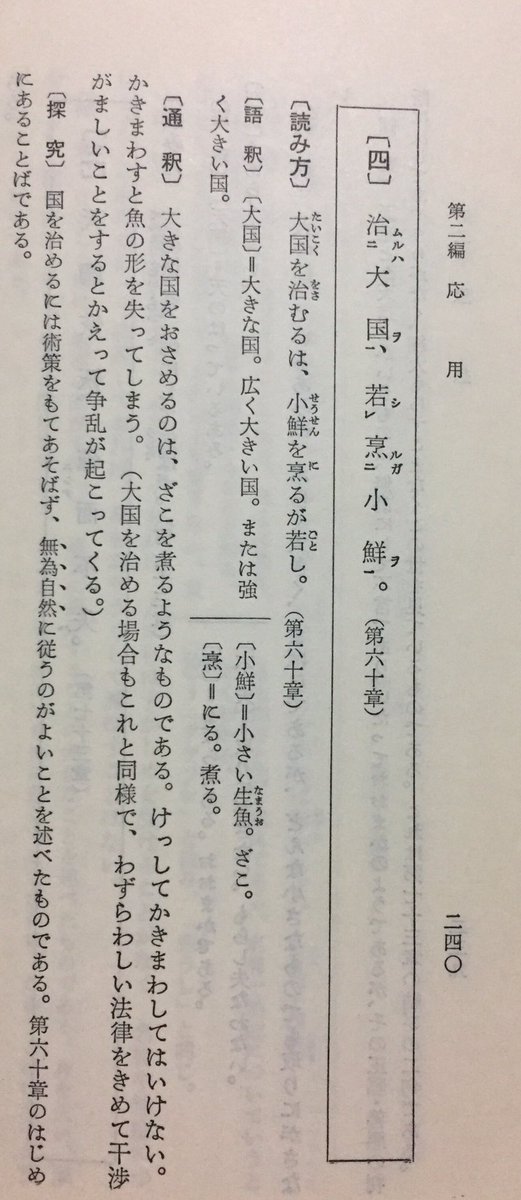 第二編 応 用
二四〇
〔四〕 治ムルハ二大国ヲ一、若シレ烹ルガ二小鮮ヲ一。(第六十章)
〔読み方〕 大国を治むるは、小鮮を烹るが若し。(第六十章)
たいこく をさ せうせん に ごと
〔語 釈〕〔大国〕＝大きな国。広く大きい国。または強
く大きい国。
〔小鮮〕＝小さい生魚。ざこ。
なまうお
〔烹〕＝にる。煮る。
〔通 釈〕 大きな国をおさめるのは、ざこを煮るようなものである。けっしてかきまわしてはいけない。
かきまわすと魚の形を失ってしまう。(大国を治める場合もこれと同様で、わずらわしい法律をきめて干渉
がましいことをするとかえって争乱が起こってくる。)
〔探 究〕 国を治めるには術策をもてあそばず、無為自然に従うのがよいことを述べたものである。第六十章のはじめ
にあることばである。